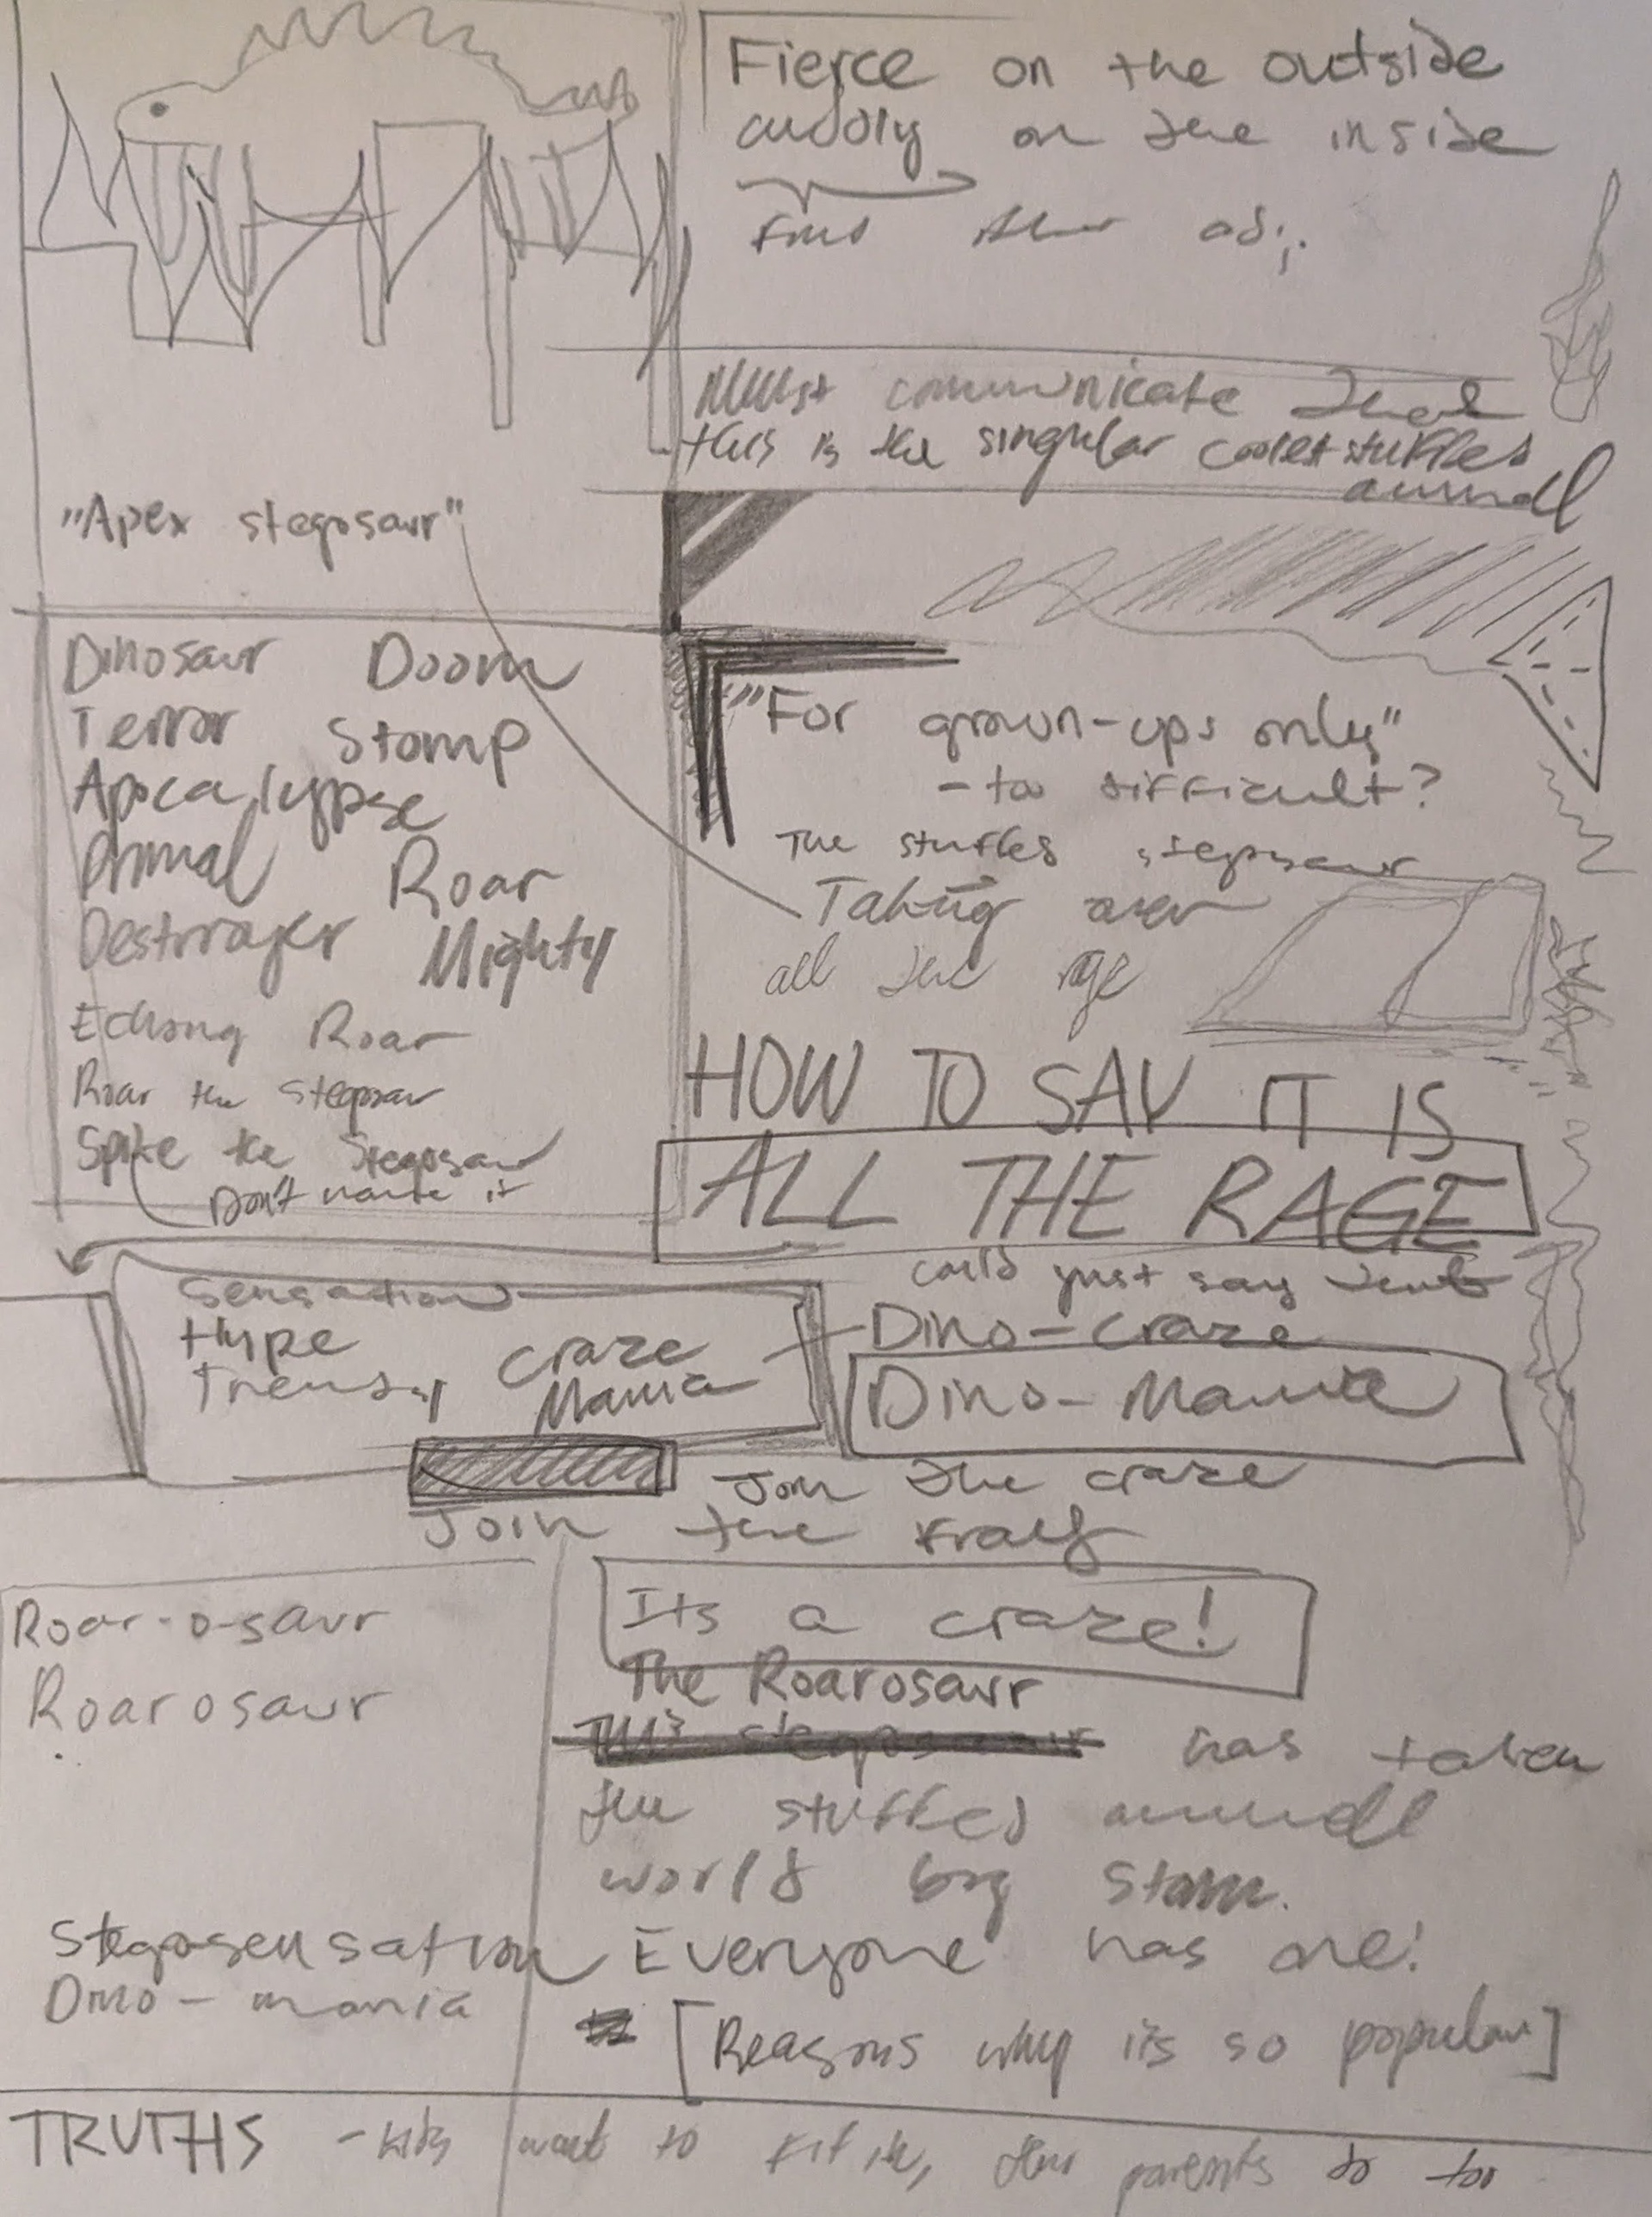 Fierce on the outside
cuddly on the inside
Find other adj.
Must communicate that
this is the singular coolest stuffed
animal
"Apex stegosaur"
Dinosaur Doom
Terror Stomp
Apocalypse
Primal Roar
Destroyer Mighty
Echoing Roar
Roar the Stegosaur
Spike the Stegosaur
Don't name it
"For grown-ups only"
- too difficult?
The stuffed stegosaur
Taking over
all the rage
HOW TO SAY IT IS
ALL THE RAGE
could just say that
Sensation
Hype
Trends Craze
Mania
Dino-Craze
Dino-Mania
Join the craze
Join the fray
Roar-o-saur
Roarosaur
Its a craze!
The Roarosaur
This stegosaur has taken
the stuffed animal
world by storm.
Everyone has one!
[Reasons why it's so popular]
Stegosensation
Dino-mania
TRUTHS - kids want to fit in, their parents do too